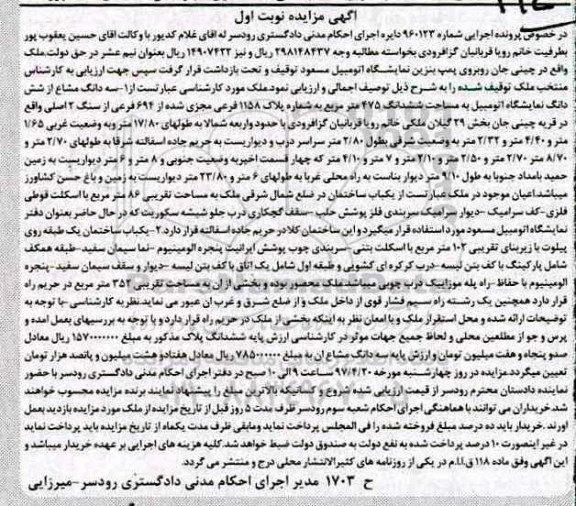 آگهی مزایده نوبت اول
در خصوص پرونده اجرایی شماره ۹۶۰۱۲۳ دایره اجرای احکام مدنی دادگستری رودسر له آقای غلام کدیور با وکالت آقای حسین یعقوب پور
بطرفیت خانم رویا قربانیان گزافرودی بخواسته مطالبه وجه ۲۹۸۱۴۸۴۳۷ ریال و نیز ۱۴۹۰۷۴۲۲ ریال بعنوان نیم عشر در حق دولت.ملک
واقع در چینی جان روبروی پمپ بنزین نمایشگاه اتومبیل مسعود توقیف و تحت بازداشت قرار گرفت سپس جهت ارزیابی به کارشناس
منتخب ملک توقیف شده را به شرح ذیل توصیف اجمالی و ارزیابی نمود.ملک مورد کارشناسی عبارتست از۱-سه دانگ مشاع از شش
دانگ نمایشگاه اتومبیل به مساحت ششدانگ ۴۷۵ متر مربع به شماره پلاک ۱۱۵۸ فرعی مجزی شده از ۶۹۴ فرعی از سنگ ۲ اصلی واقع
در قریه چینی جان بخش ۲۹ گیلان ملکی خانم رویا قربانیان گزافرودی با حدود واربعه شمالا به طولهای ۱۷/۸۰ متر وبه وضعیت غربی ۱/۶۵
متر و ۴/۴۰ متر و ۲/۳۲ متر به وضعیت شرقی بطول ۲/۸۰ متر سراسر درب و دیواریست به حریم جاده اسفالته شرقا به طولهای ۲/۷۰ متر و
۸/۷۰ متر ۲/۷۰ متر و ۲/۵۰ متر و ۲/۱۰ متر و ۷ متر و ۴/۱۰ متر که چهار قسمت اخیربه وضعیت جنوبی و ۸ متر و ۶ متر دیواریست به زمین
حمید بامداد جنوبا به طول ۹/۱۰ متر دیوار بناست به راه محلی غربا به طولهای ۶ متر و ۲۳/۸۰ متر دیواریست به زمین و باغ حسن کشاورز
میباشد اعیان موجود در ملک عبارتست از یکباب ساختمان در ضلع شمال شرقی ملک به مساحت تقریبی ۸۶ متر مربع با اسکلت قوطی
فلزی-کف سرامیک -دیوار سرامیک سربندی فلز پوشش حلب -سقف گچکاری درب جلو شیشه سکوریت که در حال حاضر بعنوان دفتر
نمایشگاه اتومبیل مسعود مورد استفاده قرار میگیرد و این ساختمان کلا در حریم جاده اسفالته قرار دارد.۲-یکباب ساختمان یک طبقه روی
پیلوت با زیربنای تقریبی ۱۰۲ متر مربع با اسکلت بتنی-سربندی چوب پوشش ایرانیت پنجره الومینیوم -نما سیمان سفید-طبقه همکف
شامل پارکینگ با کف بتن لیسه -درب کرکره ای کشویی و طبقه اول شامل یک اتاق با کف بتن لیسه -دیوار و سقف سیمان سفید-پنجره
الومینیوم با حفاظ-راه پله موزاییک درب چوبی میباشد.ملک محصور بوده و بخشی از ان به مساحت تقریبی ۳۵۲ متر مربع در حریم راه
قرار دارد همچنین یک رشته راه سیم فشار قوی از داخل ملک و از ضلع شرق و غرب ان عبور می نماید.نظریه کارشناسی -با توجه به
توضیحات ارائه شده و محل استقرار ملک و با امعان نظر به اینکه بخشی از ملک در حریم راه قرار دارد و با توجه به بررسیهای بعمل امده و
پرس و جو از مطلعین محلی و لحاظ جمیع جهات موثر در کارشناسی ارزش پایه ششدانگ پلاک مذکور به مبلغ ۱۵۷۰۰۰۰۰۰۰ ریال معادل
صدو پنجاه و هفت میلیون تومان و ارزش پایه سه دانگ مشاع ان به مبلغ ۷۸۵۰۰۰۰۰۰ ریال معادل هفتادو هشت میلیون و پانصد هزار تومان
تعیین میگردد.مزایده در روز چهارشنبه مورخه ۹۷/۴/۲۰ ساعت ۹ الی ۱۰ صبح در دفتر اجرای احکام مدنی دادگستری رودسر با حضور
نماینده دادستان محترم رودسر از قیمت ارزیابی شده شروع و کسانیکه بالاترین مبلغ را پیشنهاد نمایند برنده مزایده محسوب خواهند
شد.خریداران می توانند با هماهنگی اجرای احکام شعبه سوم رودسر ظرف مدت ۵ روز قبل از تاریخ مزایده از ملک مورد مزایده بازدید بعمل
اورند.خریدار باید ده درصد مبلغ فروخته شده را فی المجلس پرداخت نماید ومابقی ظرف مدت یکماه از تاریخ مزایده باید پرداخت نماید
در غیر اینصورت ۱۰ درصد پرداخت شده به نفع دولت به صندوق دولت ضبط خواهد شد.کلیه هزینه های اجرایی بر عهده خریدار میباشد و
این آگهی وفق ماده ۱۱۸ ق.ا.ا.م در یکی از روزنامه های کثیرالانتشار محلی درج و منتشر می گردد.
ح ۱۷۰۳ مدیر اجرای احکام مدنی دادگستری رودسر-میرزایی